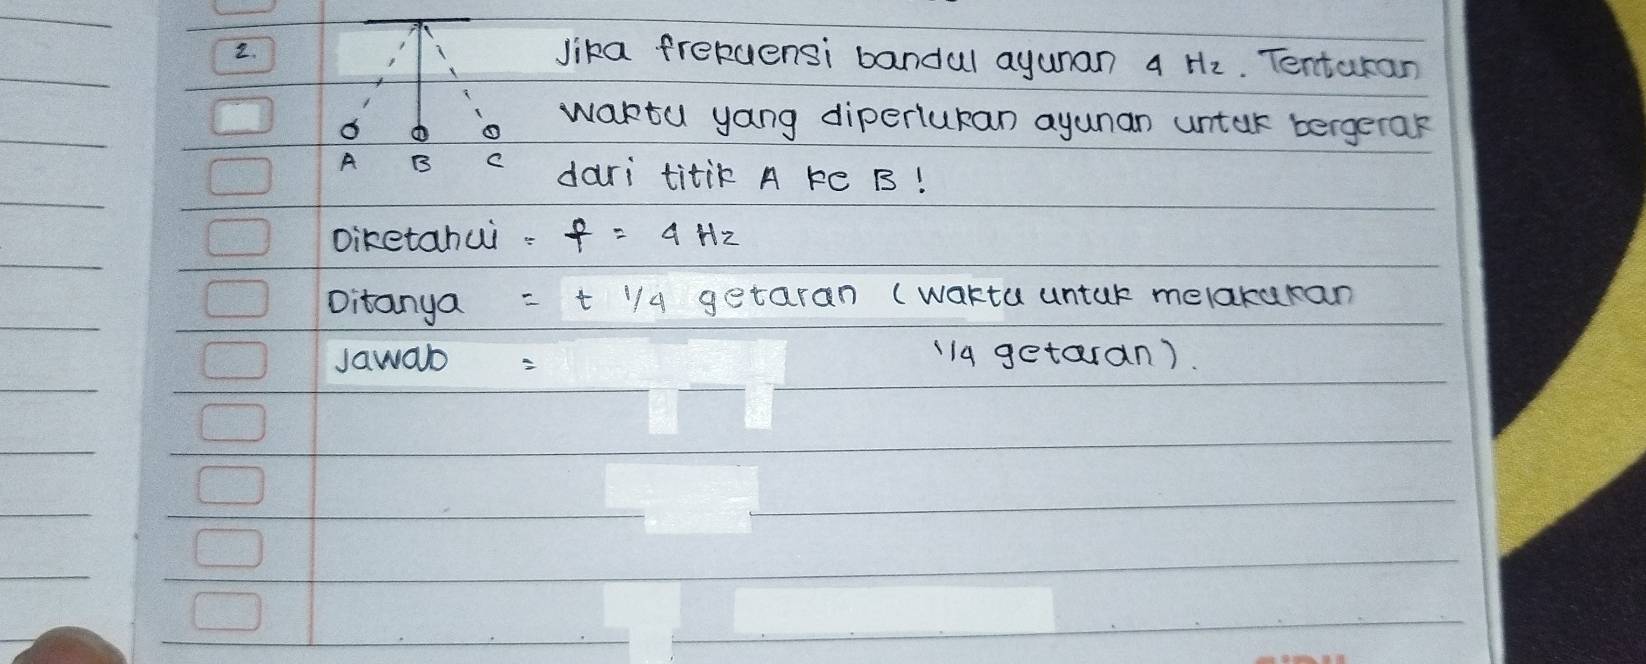 2.
Jika frekuensi bandul ayunan 4 Hz. Tentukan
waktu yang diperlukan ayunan untuk bergerak
A B C
dari titik A ke B!
Diketahui = f = 4 Hz
Ditanya = t 1/4 getaran (waktu untuk melakukan
1/4 getaran).
Jawab =